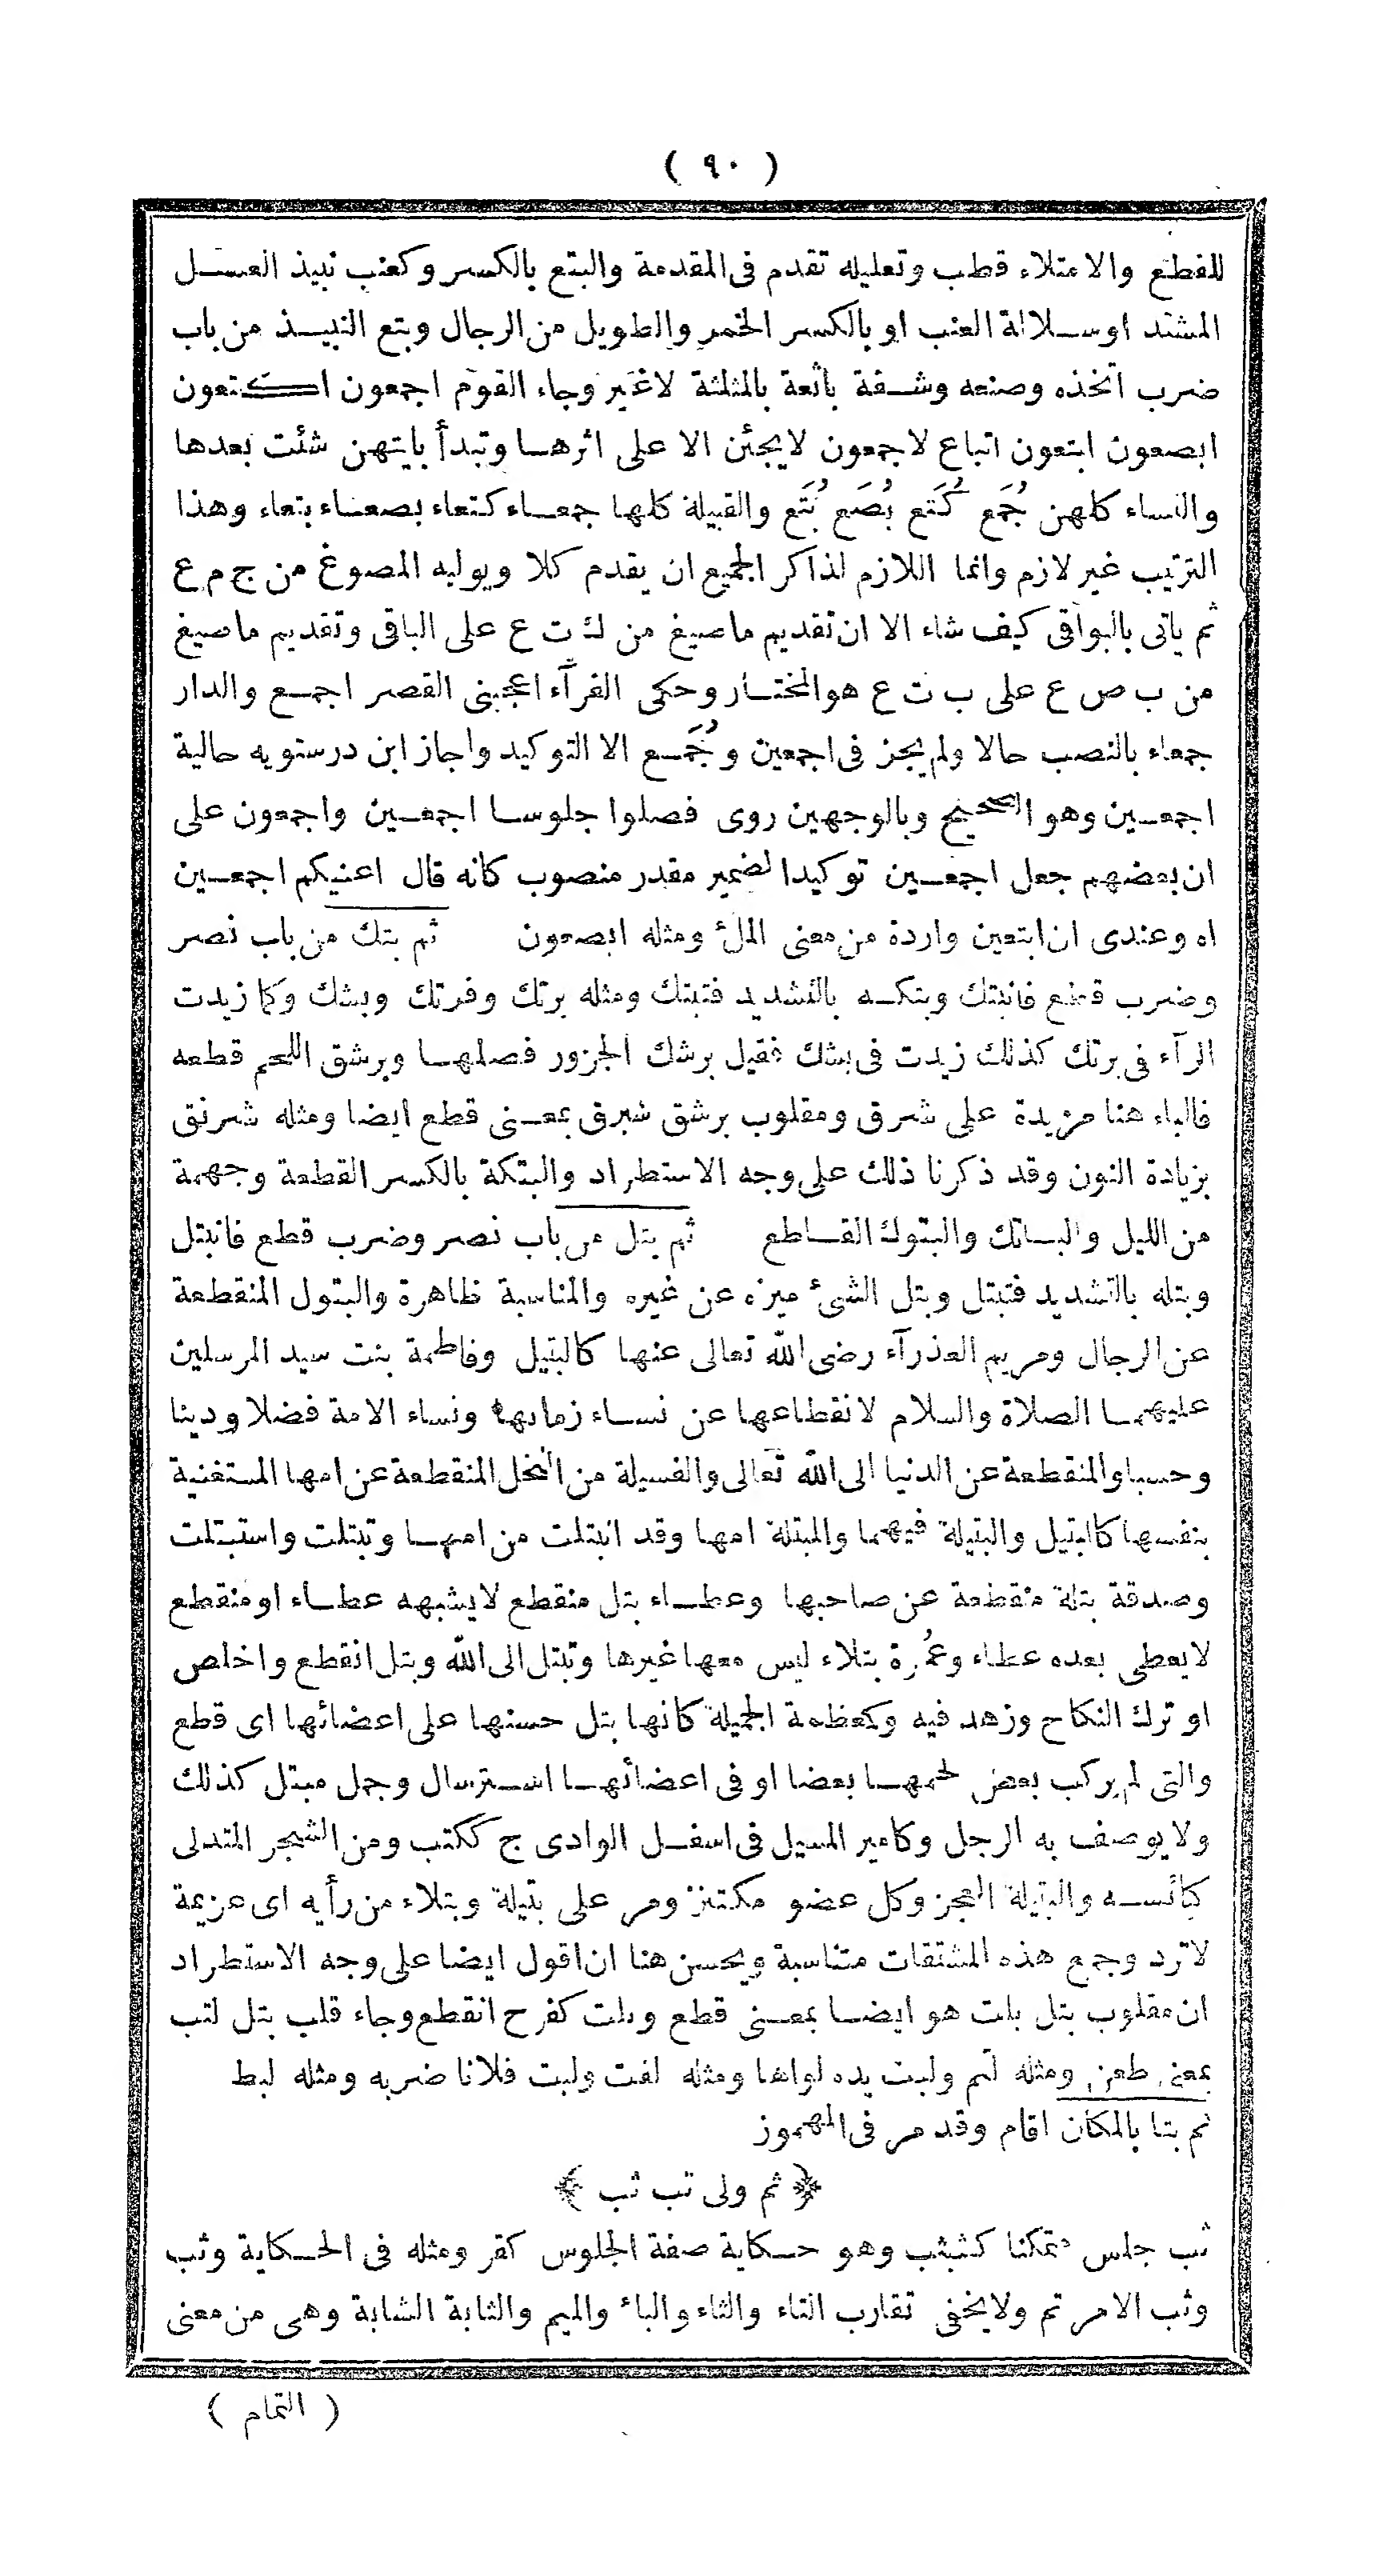 ( ٩٠ )
للقطع والامتلاء قطب وتعليله تقدم فى المقدمة والبتع بالكسر وكعنب نبيذ العسل
المشتد او سلالة العنب او بالكسر الخمر والطويل من الرجال وبتع النبيذ من باب
ضرب اتخذه وصنعه وشفة باثعة بالمثلثة لاغير وجاء القوم اجمعون اكتعون
ابصعون ابتعون اتباع لاجمعون لايجئن الا على اثرها وتبدأ بايتهن شئت بعدها
والنساء كلهن جُمَع كُتَع بُصَع بُتَع والقبيلة كلها جمعاء كتعاء بصعاء بتعاء وهذا
الترتيب غير لازم وانما اللازم لذاكر الجميع ان يقدم كلا ويوليه المصوغ من ج م ع
ثم ياتى بالبواقى كيف شاء الا ان تقديم ماصيغ من ك ت ع على الباقى وتقديم ماصيغ
من ب ص ع على ب ت ع هو المختار وحكى الفرآء اعجبنى القصر اجمع والدار
جمعاء بالنصب حالا ولم يجز فى اجمعين وجُمَع الا التوكيد واجاز ابن درستويه حالية
اجمعين وهو الصحيح وبالوجهين روى فصلوا جلوسا اجمعين واجمعون على
ان بعضهم جعل اجمعين توكيدا لضمير مقدر منصوب كانه قال اعنيكم اجمعين
اه وعندى ان ابتعين واردة من معنى الملء ومثله ابصعون ثم بتك من باب نصر
وضرب قطع فانبتك وبتكه بالتشديد فتبتك ومثله برتك وفرتك وبشك وكما زيدت
الرآء فى برتك كذلك زيدت فى بشك فقيل برشك الجزور فصلها وبرشق اللحم قطعه
فالباء هنا مزيدة على شرق ومقلوب برشق شبرق بمعنى قطع ايضا ومثله شرنق
بزيادة النون وقد ذكرنا ذلك على وجه الاستطراد والبتكة بالكسر القطعة وجهمة
من الليل والباتك والبتوك القاطع ثم بتل من باب نصر وضرب قطع فانبتل
وبتله بالتشديد فتبتل وبتل الشىء ميزه عن غيره والمناسبة ظاهرة والبتول المنقطعة
عن الرجال ومريم العذرآء رضى الله تعالى عنها كالبتيل وفاطمة بنت سيد المرسلين
عليهما الصلاة والسلام لانقطاعها عن نساء زمانها ونساء الامة فضلا ودينا
وحسبا والمنقطعة عن الدنيا الى الله تعالى والفسيلة من النخل المنقطعة عن امها المستغنية
بنفسها كالبتيل والبتيلة فيهما والمبتلة امها وقد انبتلت من امها وتبتلت واستبتلت
وصدقة بتلة منقطعة عن صاحبها وعطاء بتل منقطع لايشبهه عطاء او منقطع
لايعطى بعده عطاء وعُمرة بتلاء ليس معها غيرها وتبتل الى الله وبتل انقطع واخلص
او ترك النكاح وزهد فيه وكمعظمة الجميلة كانها بتل حسنها على اعضائها اى قطع
والتى لم يركب بعض لحمها بعضا او فى اعضائها استرسال وجمل مبتل كذلك
ولا يوصف به الرجل وكامير المسيل فى اسفل الوادى ج ككتب ومن الشجر المتدلى
كبائسه والبتيلة العجز وكل عضو مكتنز ومر على بتيلة وبتلاء من رأيه اى عزيمة
لاترد وجمع هذه المشتقات متناسبة ويحسن هنا ان اقول ايضا على وجه الاستطراد
ان مقلوب بتل بلت هو ايضا بمعنى قطع وبلت كفرح انقطع وجاء قلب بتل لتب
بمعنى طعن ومثله لتم ولبت يده لواها ومثله لفت ولبت فلانا ضربه ومثله لبط
ثم بتا بالمكان اقام وقد مر فى المهموز
﴿ ثم ولى تب ثب ﴾
ثب جلس متمكنا كثبثب وهو حكاية صفة الجلوس كقر ومثله فى الحكاية وثب
وثب الامر تم ولايخفى تقارب التاء والثاء والباء والميم والثابة الشابة وهى من معنى
( التمام )